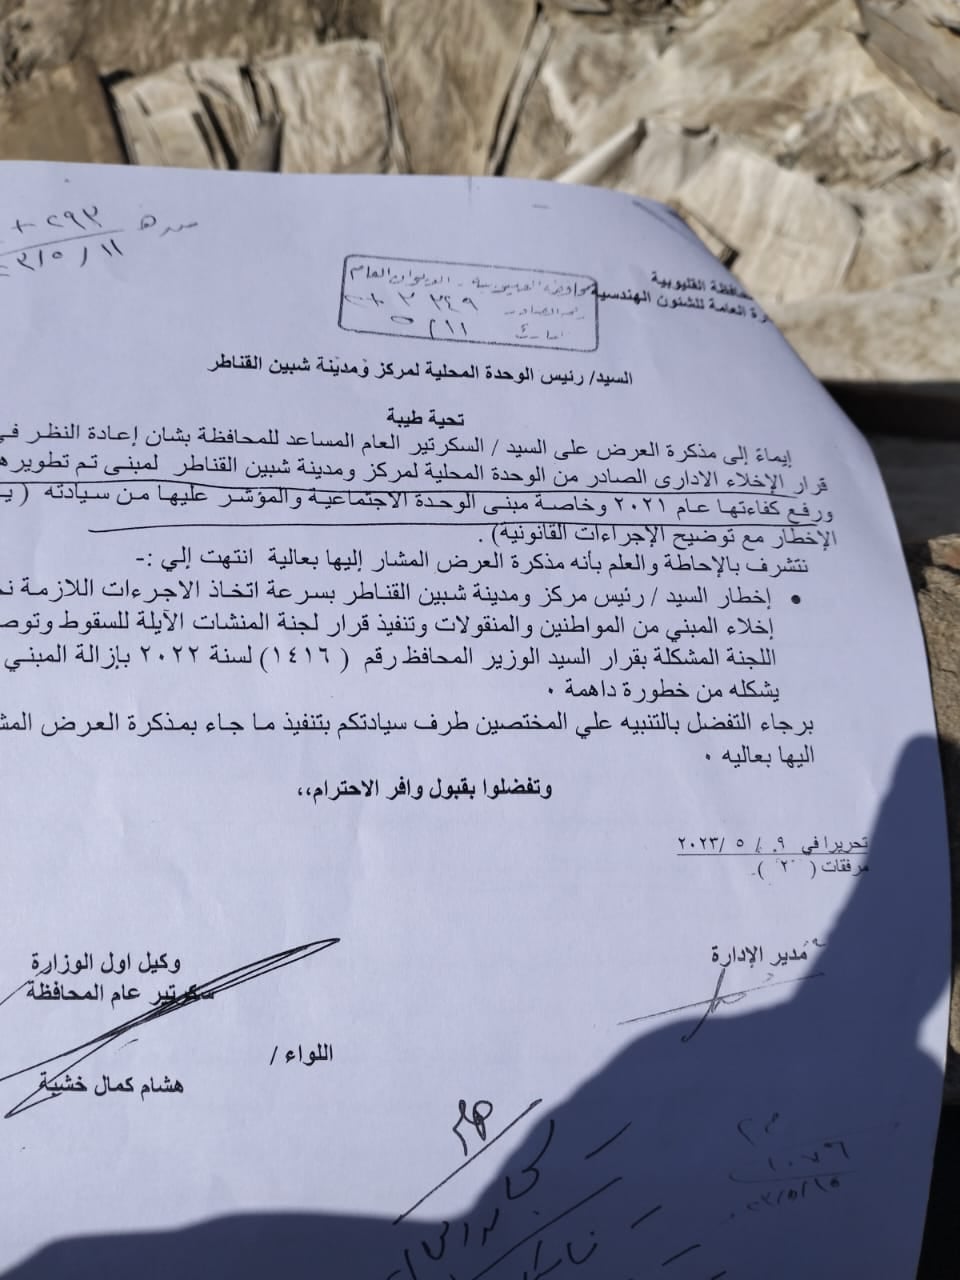 محافظة القليوبية
الإدارة العامة للشئون الهندسية
محافظة القليوبية - الديوان العام
رقم الصادر ٣٢٤٩
تاريخ ١١/٥
السيد/ رئيس الوحدة المحلية لمركز ومدينة شبين القناطر
تحية طيبة
إيماءً إلى مذكرة العرض على السيد / السكرتير العام المساعد للمحافظة بشان إعادة النظر في
قرار الإخلاء الادارى الصادر من الوحدة المحلية لمركز ومدينة شبين القناطر لمبنى تم تطويره
ورفع كفاءتها عام ٢٠٢١ وخاصة مبنى الوحدة الاجتماعية والمؤشر عليها من سيادته (
الإخطار مع توضيح الإجراءات القانونية) .
نتشرف بالإحاطة والعلم بأنه مذكرة العرض المشار إليها بعالية انتهت إلي :-
• إخطار السيد / رئيس مركز ومدينة شبين القناطر بسرعة اتخاذ الاجرءات اللازمة نحو
إخلاء المبني من المواطنين والمنقولات وتنفيذ قرار لجنة المنشات الآيلة للسقوط وتوصية
اللجنة المشكلة بقرار السيد الوزير المحافظ رقم ( ١٤١٦ ) لسنة ٢٠٢٢ بإزالة المبني
يشكله من خطورة داهمة ٠
برجاء التفضل بالتنبيه علي المختصين طرف سيادتكم بتنفيذ ما جاء بمذكرة العرض المشار
اليها بعاليه ٠
وتفضلوا بقبول وافر الاحترام،،
تحريرا في ٠٩ / ٥ /٢٠٢٣
مرفقات ( ٢ ) .
مدير الإدارة
وكيل اول الوزارة
سكرتير عام المحافظة
اللواء /
هشام كمال خشبة